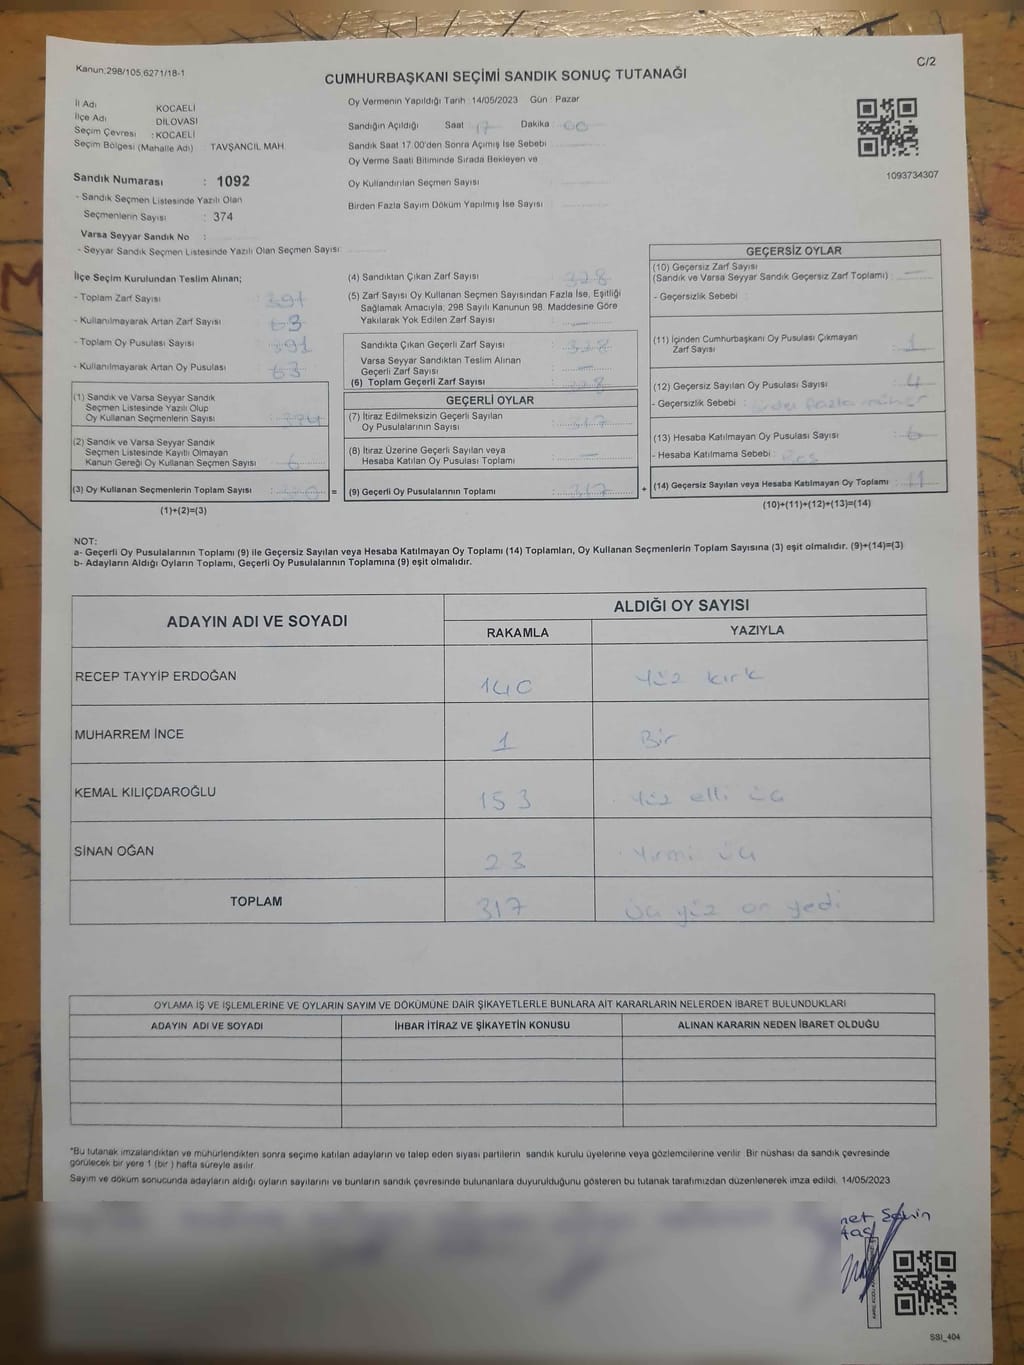 Kanun:298/105,6271/18-1
C/2
CUMHURBAŞKANI SEÇİMİ SANDIK SONUÇ TUTANAĞI
İl Adı KOCAELİ
İlçe Adı DİLOVASI
Seçim Çevresi : KOCAELİ
Seçim Bölgesi (Mahalle Adı) TAVŞANCIL MAH.
Oy Vermenin Yapıldığı Tarih : 14/05/2023 Gün : Pazar
Sandığın Açıldığı Saat 17 Dakika 00
Sandık Saat 17.00'den Sonra Açımış İse Sebebi
Oy Verme Saati Bitiminde Sırada Bekleyen ve
Oy Kullandırılan Seçmen Sayısı
Birden Fazla Sayım Döküm Yapılmış İse Sayısı
1093734307
Sandık Numarası : 1092
- Sandık Seçmen Listesinde Yazılı Olan
Seçmenlerin Sayısı : 374
Varsa Seyyar Sandık No :
- Seyyar Sandık Seçmen Listesinde Yazılı Olan Seçmen Sayısı:
İlçe Seçim Kurulundan Teslim Alınan;
- Toplam Zarf Sayısı : 391
- Kullanılmayarak Artan Zarf Sayısı : 63
- Toplam Oy Pusulası Sayısı : 391
- Kullanılmayarak Artan Oy Pusulası : 63
(1) Sandık ve Varsa Seyyar Sandık
Seçmen Listesinde Yazılı Olup
Oy Kullanan Seçmenlerin Sayısı
(2) Sandık ve Varsa Seyyar Sandık
Seçmen Listesinde Kayıtlı Olmayan
Kanun Gereği Oy Kullanan Seçmen Sayısı : 6
(3) Oy Kullanan Seçmenlerin Toplam Sayısı :
(1)+(2)=(3)
(4) Sandıktan Çıkan Zarf Sayısı : 328
(5) Zarf Sayısı Oy Kullanan Seçmen Sayısından Fazla İse, Eşitliği
Sağlamak Amacıyla; 298 Sayılı Kanunun 98. Maddesine Göre
Yakılarak Yok Edilen Zarf Sayısı : —
Sandıkta Çıkan Geçerli Zarf Sayısı : 328
Varsa Seyyar Sandıktan Teslim Alınan
Geçerli Zarf Sayısı : —
(6) Toplam Geçerli Zarf Sayısı : 328
GEÇERLİ OYLAR
(7) İtiraz Edilmeksizin Geçerli Sayılan
Oy Pusulalarının Sayısı : 317
(8) İtiraz Üzerine Geçerli Sayılan veya
Hesaba Katılan Oy Pusulası Toplamı : —
= (9) Geçerli Oy Pusulalarının Toplamı : 317
GEÇERSİZ OYLAR
(10) Geçersiz Zarf Sayısı
(Sandık ve Varsa Seyyar Sandık Geçersiz Zarf Toplamı) : —
- Geçersizlik Sebebi :
(11) İçinden Cumhurbaşkanı Oy Pusulası Çıkmayan
Zarf Sayısı : 1
(12) Geçersiz Sayılan Oy Pusulası Sayısı : 4
- Geçersizlik Sebebi : birden fazla mühür
(13) Hesaba Katılmayan Oy Pusulası Sayısı : 6
- Hesaba Katılmama Sebebi :
+ (14) Geçersiz Sayılan veya Hesaba Katılmayan Oy Toplamı : 11
(10)+(11)+(12)+(13)=(14)
NOT:
a- Geçerli Oy Pusulalarının Toplamı (9) ile Geçersiz Sayılan veya Hesaba Katılmayan Oy Toplamı (14) Toplamları, Oy Kullanan Seçmenlerin Toplam Sayısına (3) eşit olmalıdır. (9)+(14)=(3)
b- Adayların Aldığı Oyların Toplamı, Geçerli Oy Pusulalarının Toplamına (9) eşit olmalıdır.
ADAYIN ADI VE SOYADI
ALDIĞI OY SAYISI
RAKAMLA YAZIYLA
RECEP TAYYİP ERDOĞAN 140 Yüz kırk
MUHARREM İNCE 1 Bir
KEMAL KILIÇDAROĞLU 153 Yüz elli üç
SİNAN OĞAN 23 Yirmi üç
TOPLAM 317 Üç yüz on yedi
OYLAMA İŞ VE İŞLEMLERİNE VE OYLARIN SAYIM VE DÖKÜMÜNE DAİR ŞİKAYETLERLE BUNLARA AİT KARARLARIN NELERDEN İBARET BULUNDUKLARI
ADAYIN ADI VE SOYADI İHBAR İTİRAZ VE ŞİKAYETİN KONUSU ALINAN KARARIN NEDEN İBARET OLDUĞU
*Bu tutanak imzalandıktan ve mühürlendikten sonra seçime katılan adayların ve talep eden siyasi partilerin sandık kurulu üyelerine veya gözlemcilerine verilir. Bir nüshası da sandık çevresinde
görülecek bir yere 1 (bir ) hafta süreyle asılır.
Sayım ve döküm sonucunda adayların aldığı oyların sayılarını ve bunların sandık çevresinde bulunanlara duyurulduğunu gösteren bu tutanak tarafımızdan düzenlenerek imza edildi. 14/05/2023
SSI_404